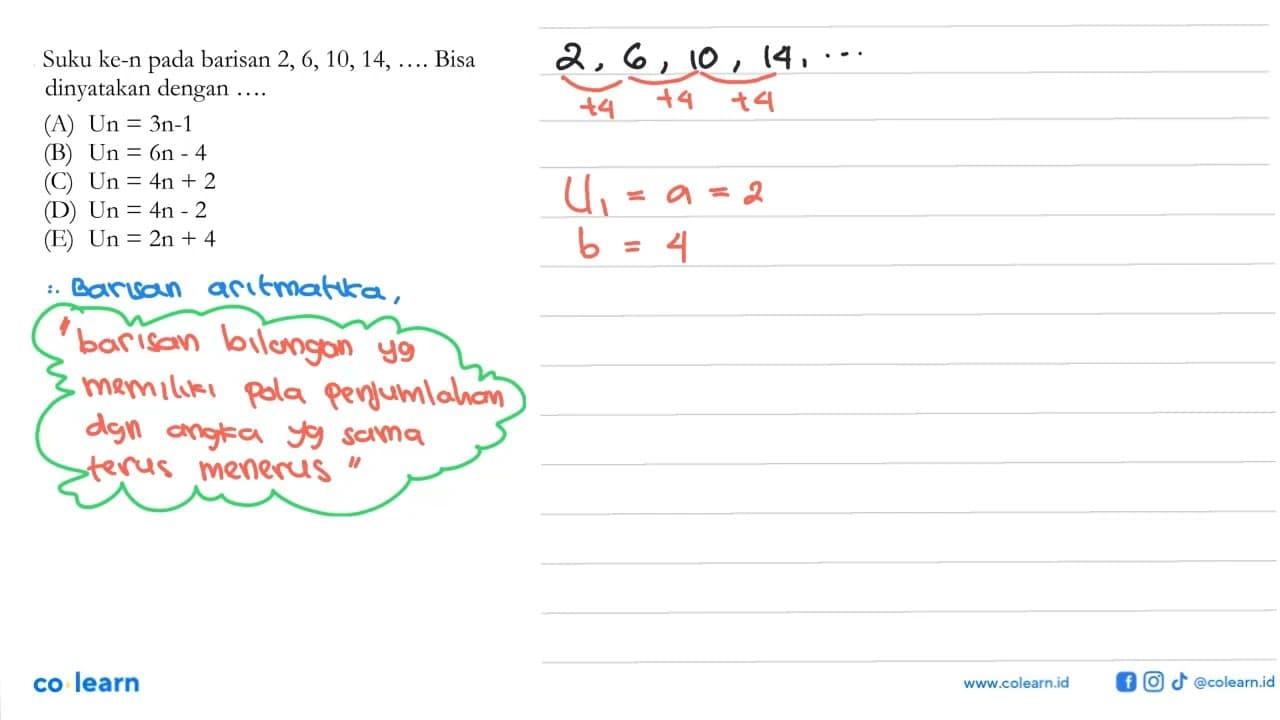 Suku ke-n pada barisan 2, 6, 10, 14, …. Bisa
dinyatakan dengan ….
(A) Un = 3n-1
(B) Un = 6n - 4
(C) Un = 4n + 2
(D) Un = 4n - 2
(E) Un = 2n + 4
:. Barisan aritmatika,
"barisan bilangan yg
memiliki pola penjumlahan
dgn angka yg sama
terus menerus"
2, 6, 10, 14, ...
+4 +4 +4
U₁ = a = 2
b = 4
co learn
www.colearn.id
@colearn.id